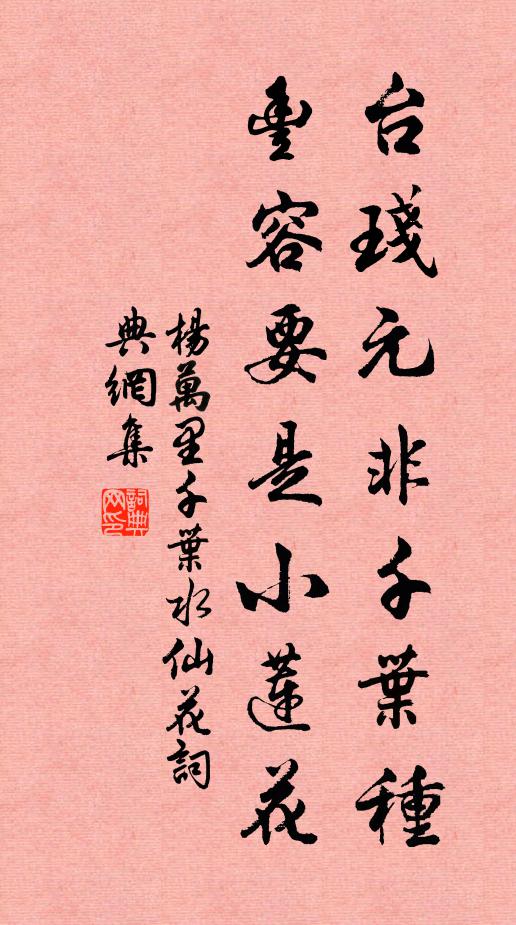 台琖元非千葉種
豊容要是小蓮花
楊萬里千葉水仙花詞
典網集
詞典網印